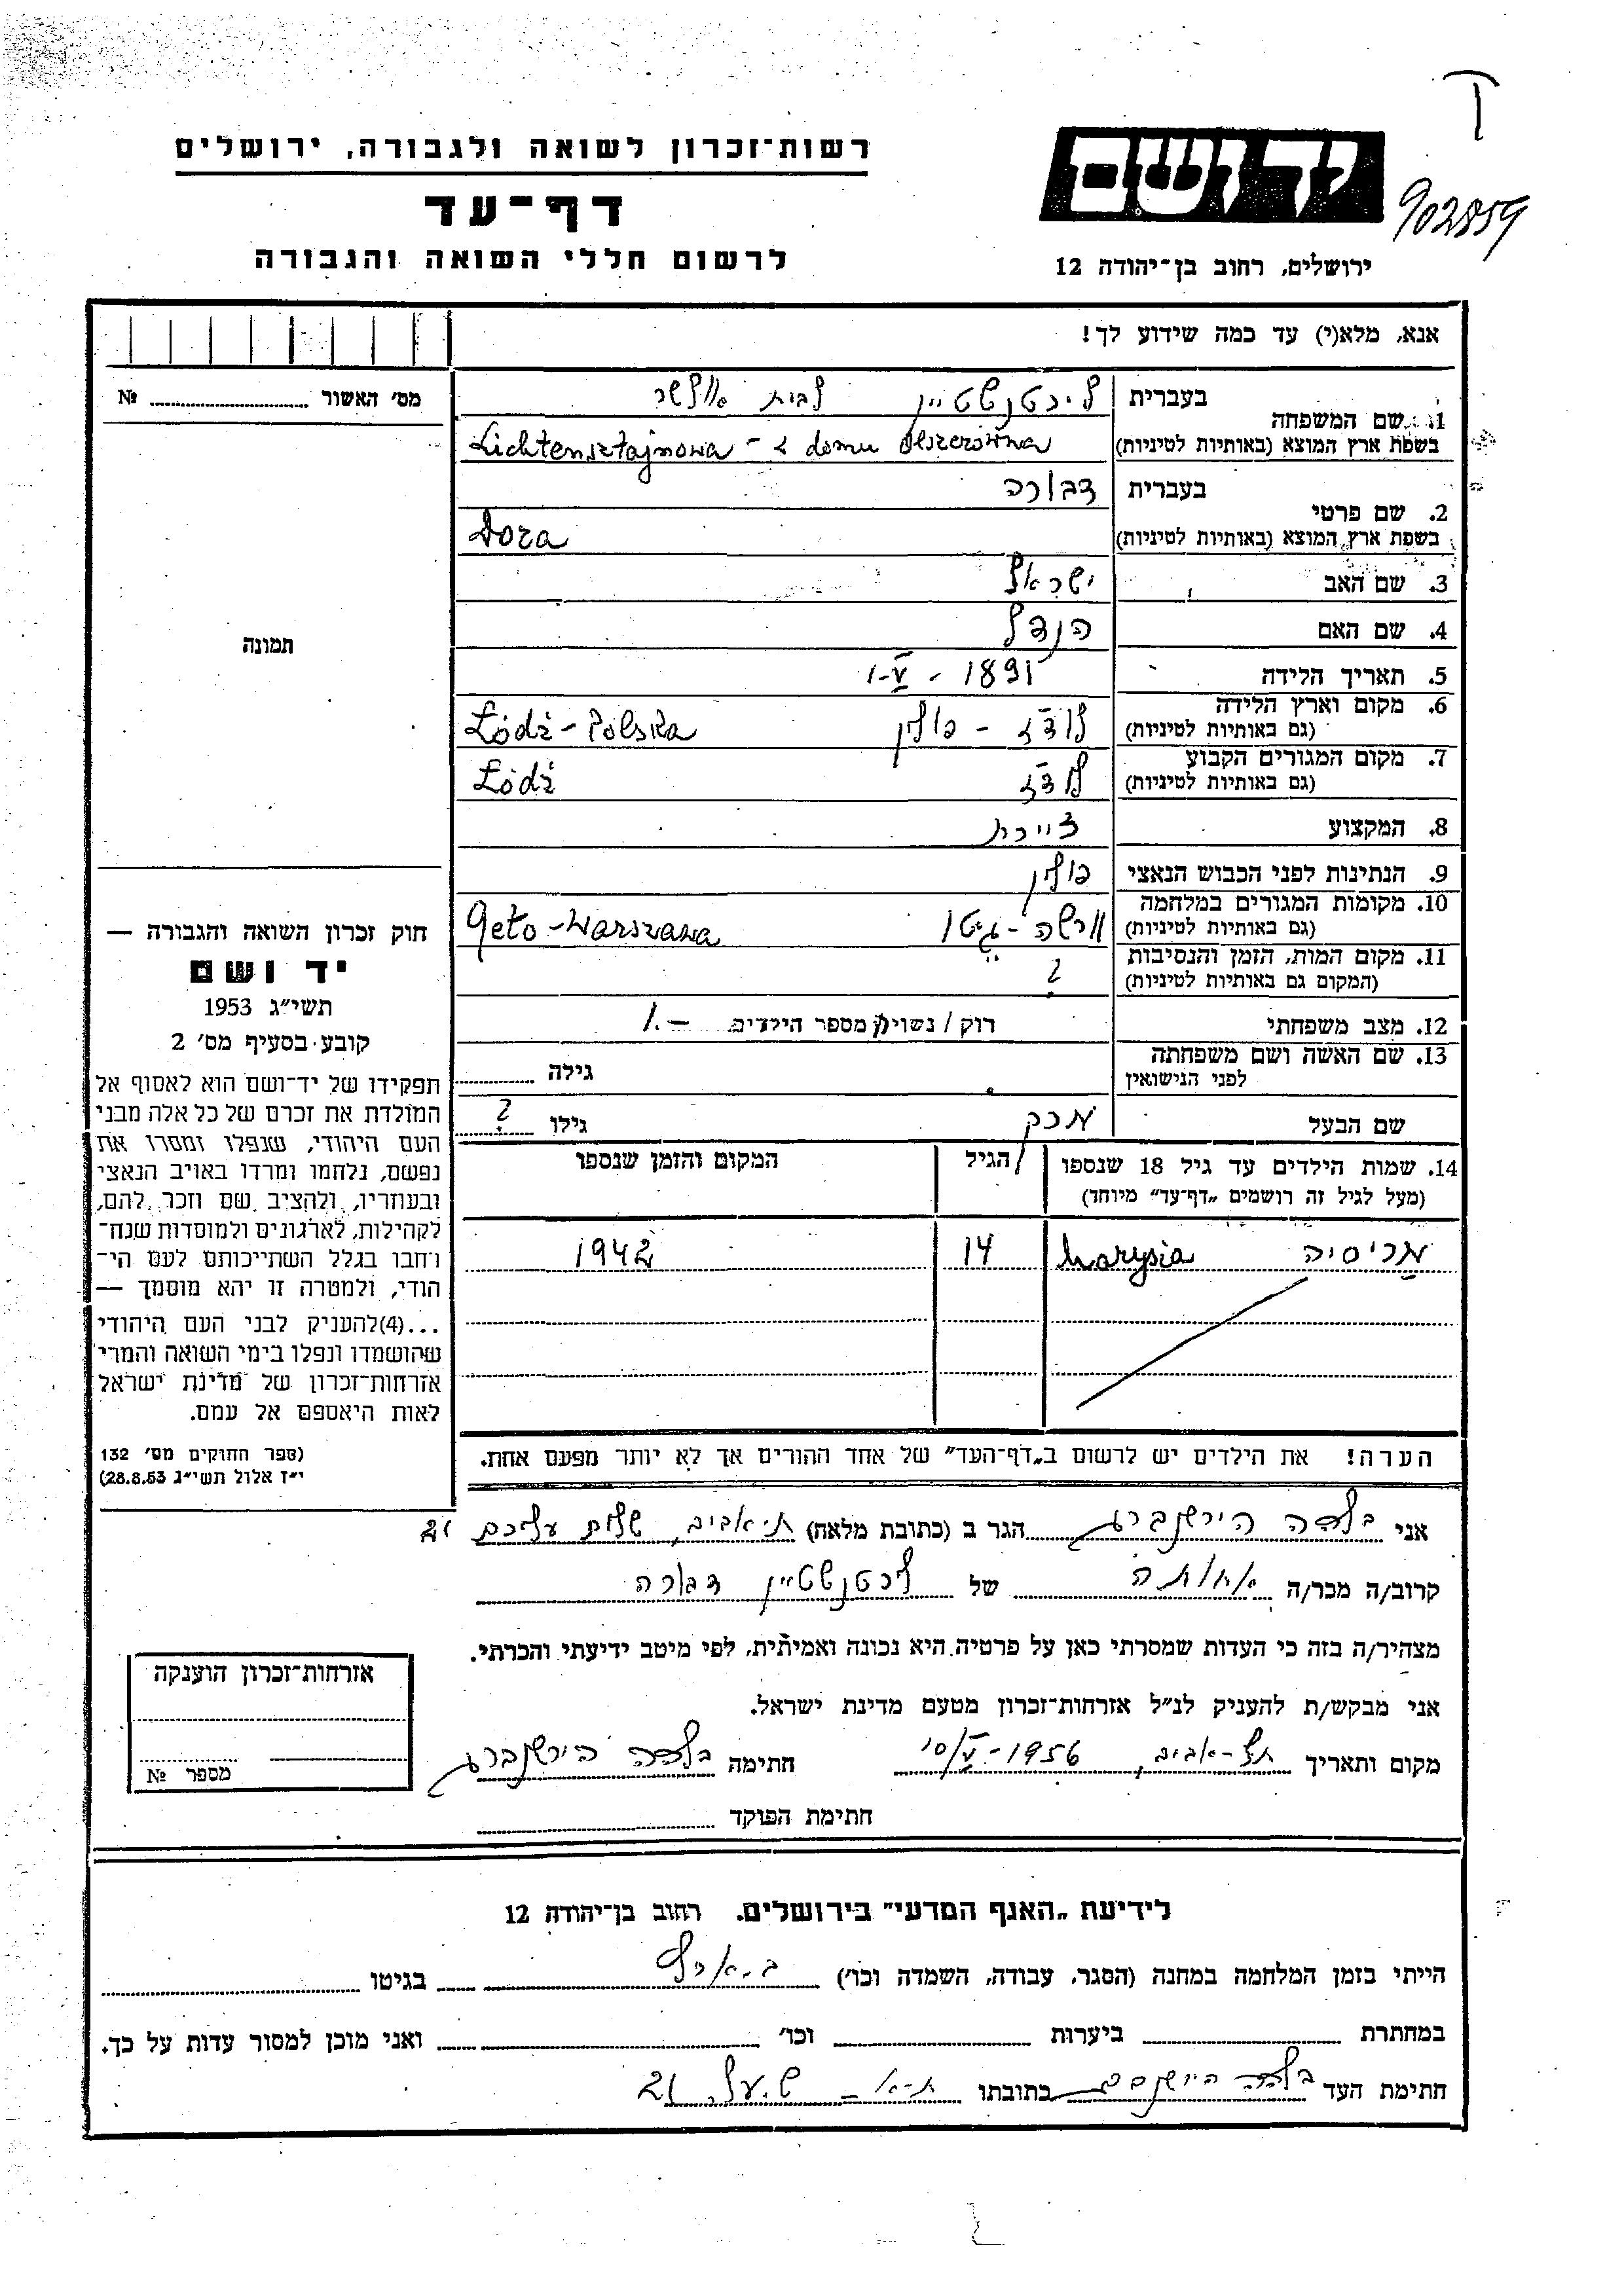 רשות־זכרון לשואה ולגבורה, ירושלים
דף־עד
לרשום חללי השואה והגבורה
ידושם
902859
ירושלים, רחוב בן־יהודה 12
אנא, מלא(י) עד כמה שידוע לך!
מס' האשור № 
1. שם המשפחה
בעברית ליכטנשטיין לבית
בשפת ארץ המוצא (באותיות לטיניות) Lichtensztajnowa - z domu Olszerówna
2. שם פרטי
בעברית דבורה
בשפת ארץ המוצא (באותיות לטיניות) Dora
3. שם האב ישראל
4. שם האם הנדל
5. תאריך הלידה 1-V-1891
6. מקום וארץ הלידה (גם באותיות לטיניות) לודז - פולין Łódź - Polska
7. מקום המגורים הקבוע (גם באותיות לטיניות) לודז Łódź
8. המקצוע
9. הנתינות לפני הכבוש הנאצי פולין
10. מקומות המגורים במלחמה (גם באותיות לטיניות) וורשה - גיטו Geto - Warszawa
11. מקום המות, הזמן והנסיבות (המקום גם באותיות לטיניות) ?
12. מצב משפחתי רוק / נשוי מספר הילדים 1.-
13. שם האשה ושם משפחתה לפני הנישואין גילה
שם הבעל מרק גילו ?
14. שמות הילדים עד גיל 18 שנספו (מעל לגיל זה רושמים „דף־עד" מיוחד) הגיל המקום והזמן שנספו
מריסיה Marysia 14 1942
הערה! את הילדים יש לרשום ב„דף־העד" של אחד ההורים אך לא יותר מפעם אחת.
תמונה
חוק זכרון השואה והגבורה —
יד ושם
תשי״ג 1953
קובע בסעיף מס' 2
תפקידו של יד־ושם הוא לאסוף אל
המולדת את זכרם של כל אלה מבני
העם היהודי, שנפלו ומסרו את
נפשם, נלחמו ומרדו באויב הנאצי
ובעוזריו, ולהציב שם וזכר להם,
לקהילות, לארגונים ולמוסדות שנח־
רחבו בגלל השתייכותם לעם הי־
הודי, ולמטרה זו יהא מוסמך —
...(4)להעניק לבני העם היהודי
שהושמדו ונפלו בימי השואה והמרי
אזרחות־זכרון של מדינת ישראל
לאות היאספם אל עמם.
(ספר החוקים מס' 132
י״ז אלול תשי״ג 28.8.53)
אני בלהה הירשנברג הגר ב (כתובת מלאה) ת-אביב, שלום עליכם 21
קרוב/ה מכר/ה אחותה של ליכטנשטיין דבורה
מצהיר/ה בזה כי העדות שמסרתי כאן על פרטיה היא נכונה ואמיתית, לפי מיטב ידיעתי והכרתי.
אני מבקש/ת להעניק לנ״ל אזרחות־זכרון מטעם מדינת ישראל.
מקום ותאריך תל-אביב, 10/V-1956 חתימה בלהה הירשנברג
חתימת הפוקד
אזרחות־זכרון הוענקה
מספר №
לידיעת „האגף המדעי" בירושלים. רחוב בן־יהודה 12
הייתי בזמן המלחמה במחנה (הסגר, עבודה, השמדה וכו') בגיטו
במחתרת ביערות וכו' ואני מוכן למסור עדות על כך.
חתימת העד בלהה הירשנברג כתובתו ת-א - ש. על. 21